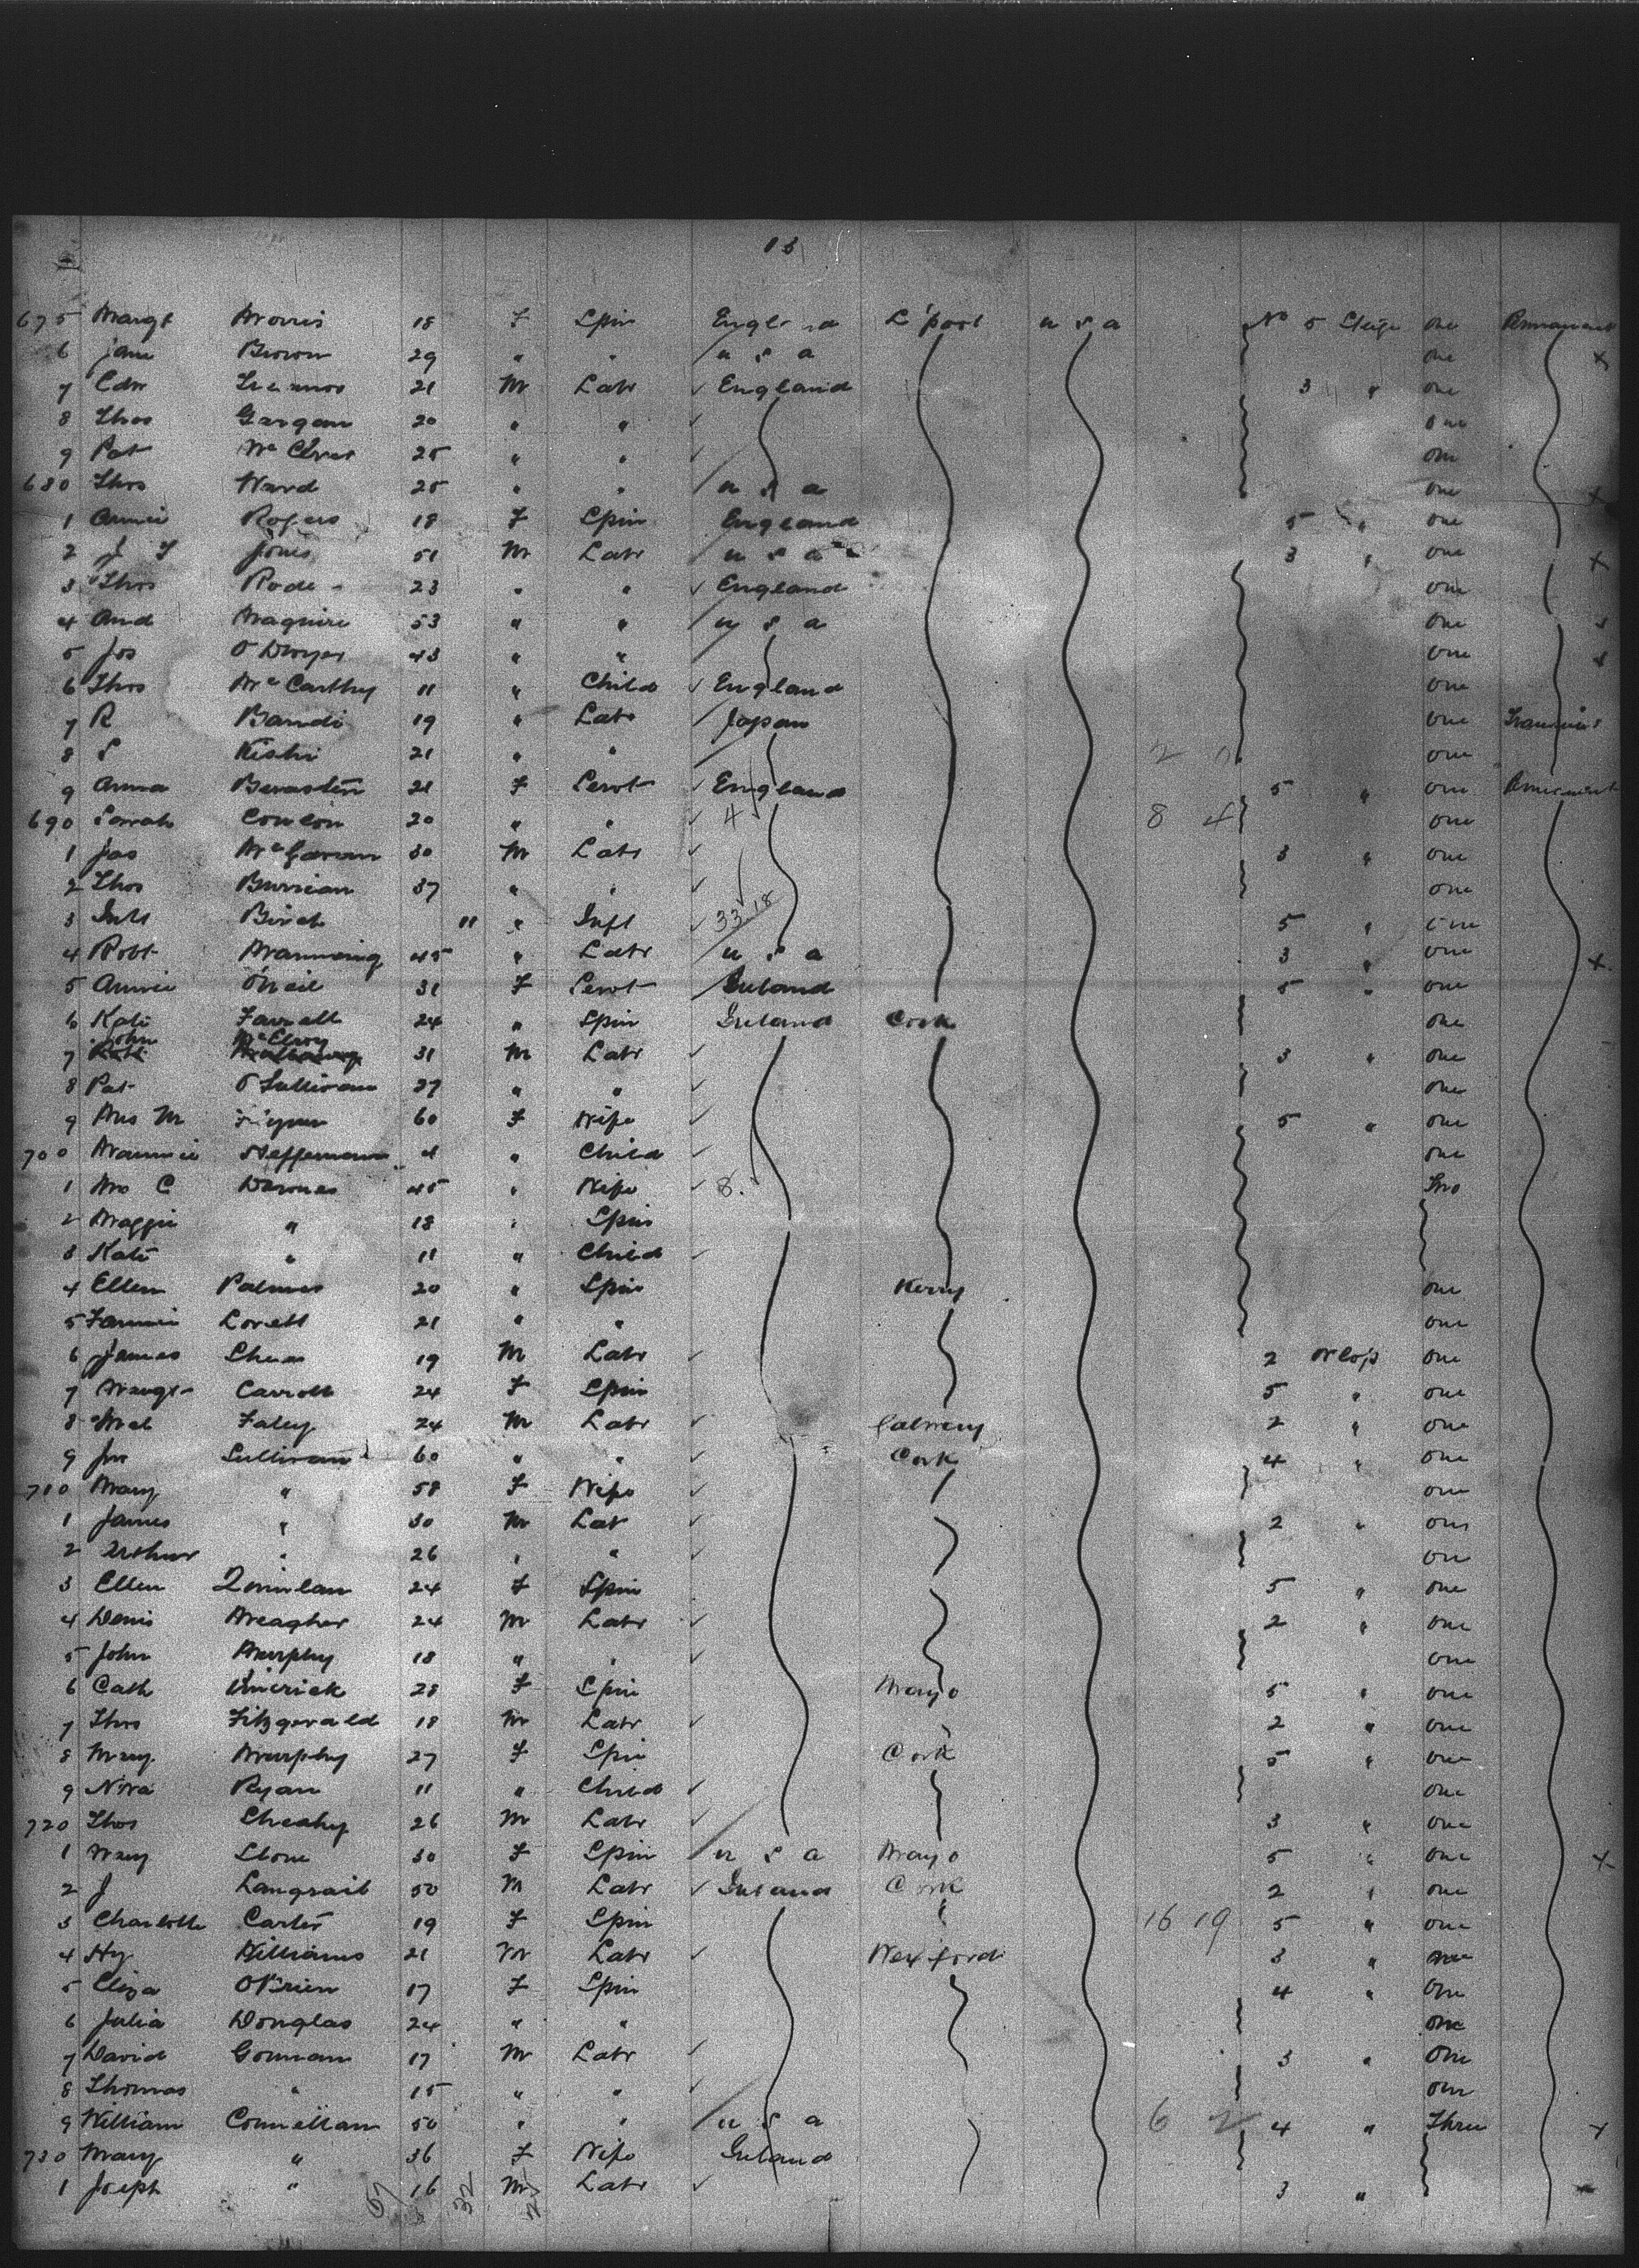 13
675 Margt Morris 18 F Spin England L'pool u s a No 5 Steige one Permanent
6 Jane Brown 29 " " / u s a one x
7 Edw 21 M Labr ✓ England 3 " one
8 Thos Gargan 20 " " ✓ one
9 Pat 25 " " ✓ one
680 Thos Ward 25 " " / u s a one x
1 Annie Rogers 18 F Spin England 5 " one
2 J Jones 51 M Labr u s a 3 " one x
3 Thos Rode 23 " " ✓ England one
4 And Maguire 53 " " / u s a one x
5 Jos O Dwyer 43 " " / one x
6 Thos McCarthy 11 " Child ✓ England one
7 R Bandi 19 " Labr / Japan one
8 S Kishi 21 " " 2 0 one
9 Anna 21 F Servt ✓ England 5 " one Permanent
690 Sarah Conlon 20 " " ✓ 4 8 4 one
1 Jas 30 M Labr ✓ 3 " one
2 Thos 37 " " ✓ one
3 Birch 11 " Inft ✓ 33 18 5 " one
4 Robt Mannering 45 " Labr / u s a 3 " one x
5 Annie O'Neil 31 F Servt / Ireland 5 " one
6 Kate Farrell 24 " Spin Ireland Cork one
John McElroy
7 31 M Labr ✓ 3 " one
8 Pat O Sullivan 27 " " ✓ one
9 Mrs M 60 F Wife ✓ 5 " one
700 Mannie Heffernan 4 " Child ✓ one
1 Mrs C 45 " Wife ✓ 8 Two
2 Maggie " 18 " Spin
3 Kate " 11 " Child ✓
4 Ellen Palmer 20 " Spin Kerry one
5 Fannie Lovett 21 " " one
6 James Shea 19 M Labr ✓ 2 one
7 Margt Carroll 24 F Spin 5 " one
8 Mal Faley 24 M Labr ✓ Galway 2 " one
9 Jno Sullivan 60 " " ✓ Cork 4 " one
710 Mary " 58 F Wife ✓ one
1 James " 30 M Lab ✓ 2 " one
2 Arthur " 26 " " ✓ one
3 Ellen Quinlan 24 F Spin 5 " one
4 Denis Meagher 24 M Labr ✓ 2 " one
5 John Murphy 18 " " ✓ one
6 Cath Limerick 28 F Spin Mayo 5 " one
7 Thos Fitzgerald 18 M Labr ✓ 2 " one
8 Mary Murphy 27 F Spin Cork 5 " one
9 Nora Ryan 11 " Child ✓ one
720 Thos Sheahy 26 M Labr ✓ 3 " one
1 Mary Stone 30 F Spin / u s a Mayo 5 " one x
2 J 50 M Labr ✓ Ireland Cork 2 " one
3 Charlotte Carter 19 F Spin 16 19 5 " one
4 Hy Williams 21 M Labr ✓ Wexford 3 " one
5 Eliza O'Brien 17 F Spin 4 " one
6 Julia Douglas 24 " " one
7 David Gorman 17 M Labr ✓ 3 " one
8 Thomas " 15 " " ✓ one
9 William Connellan 50 " " / u s a 6 2 4 " Three x
730 Mary " 36 F Wife Ireland
1 Joseph " 16 M Labr ✓ 3 "
32